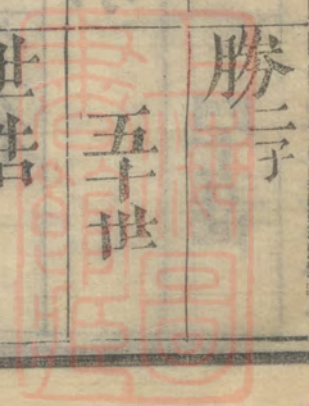 勝二子
五十世
世浩